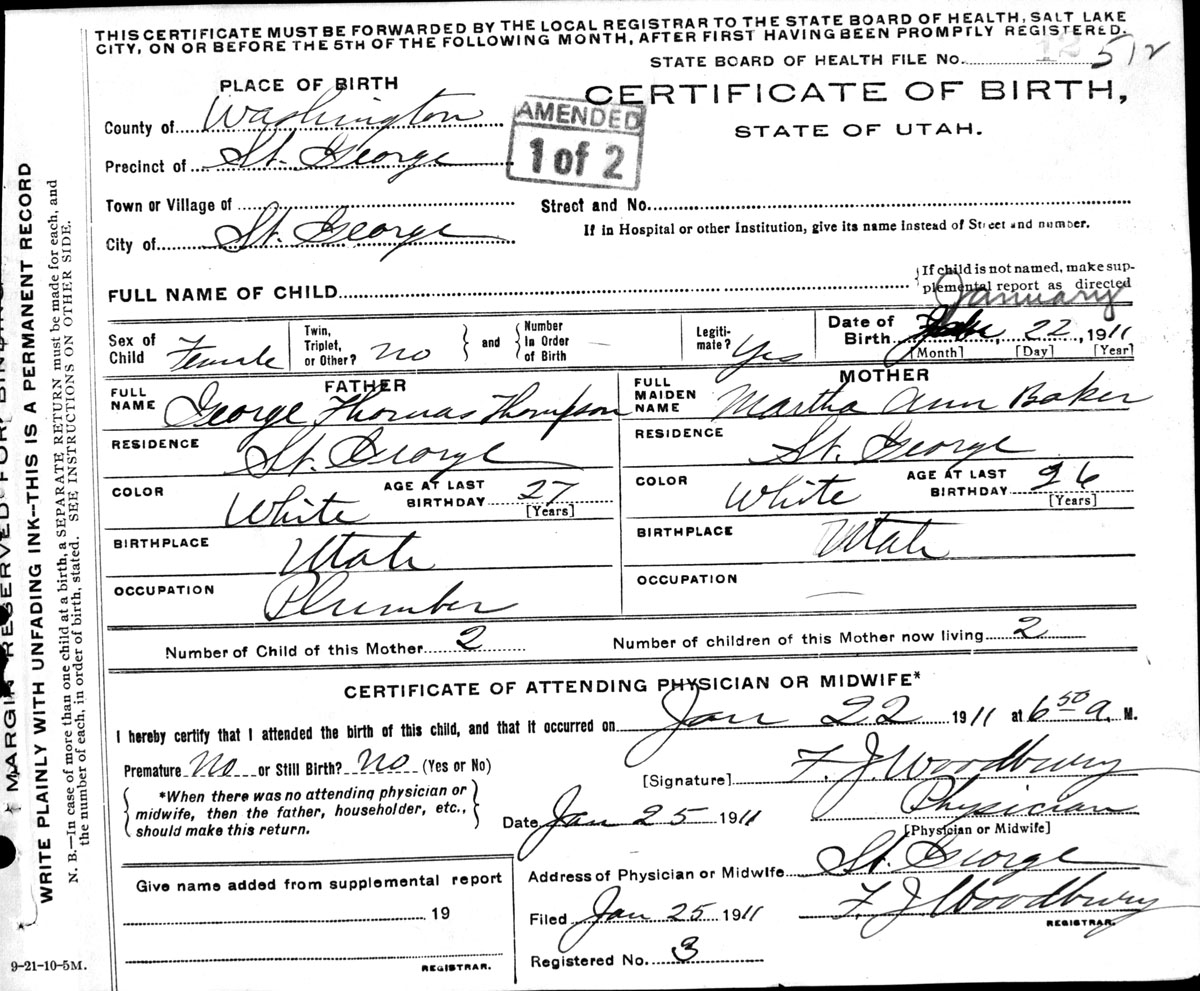 THIS CERTIFICATE MUST BE FORWARDED BY THE LOCAL REGISTRAR TO THE STATE BOARD OF HEALTH, SALT LAKE
CITY, ON OR BEFORE THE 5TH OF THE FOLLOWING MONTH, AFTER FIRST HAVING BEEN PROMPTLY REGISTERED.
STATE BOARD OF HEALTH FILE No.
PLACE OF BIRTH
CERTIFICATE OF BIRTH,
STATE OF UTAH.
AMENDED
1 of 2
County of Washington
Precinct of St. George
Town or Village of
Street and No.
City of St. George
If in Hospital or other Institution, give its name instead of Street and number.
FULL NAME OF CHILD
If child is not named, make sup-
plemental report as directed
January
Sex of Child Female
Twin, Triplet, or Other? No
and
Number In Order of Birth —
Legiti-mate? Yes
Date of Birth 22, 1911
[Month] [Day] [Year]
FATHER
FULL NAME George Thomas Thompson
RESIDENCE St. George
COLOR White
AGE AT LAST BIRTHDAY 27
[Years]
BIRTHPLACE Utah
OCCUPATION Plumber
MOTHER
FULL MAIDEN NAME Martha Ann Baker
RESIDENCE St. George
COLOR White
AGE AT LAST BIRTHDAY 26
[Years]
BIRTHPLACE Utah
OCCUPATION —
Number of Child of this Mother 2
Number of children of this Mother now living 2
CERTIFICATE OF ATTENDING PHYSICIAN OR MIDWIFE*
I hereby certify that I attended the birth of this child, and that it occurred on Jan 22 1911 at 6 50 a. M.
Premature No or Still Birth? No (Yes or No)
*When there was no attending physician or
midwife, then the father, householder, etc.,
should make this return.
[Signature] F. J. Woodbury
Date Jan 25 1911
Physician
[Physician or Midwife]
Address of Physician or Midwife St. George
Filed Jan 25 1911
F. J. Woodbury
REGISTRAR.
Registered No. 3
Give name added from supplemental report
19
REGISTRAR.
9-21-10-5M.
MARGIN RESERVED FOR BINDING
WRITE PLAINLY WITH UNFADING INK—THIS IS A PERMANENT RECORD
N. B.—In case of more than one child at a birth, a SEPARATE RETURN must be made for each, and
the number of each, in order of birth, stated. SEE INSTRUCTIONS ON OTHER SIDE.